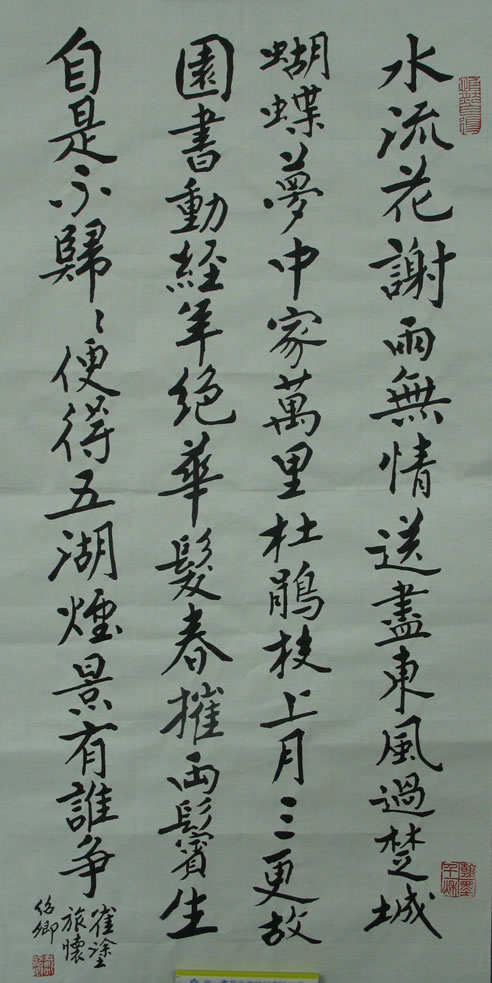 水流花謝兩無情送盡東風過楚城
蝴蝶夢中家萬里杜鵑枝上月三更故
園書動経年絶華髮春摧两鬢生
自是不歸〻便得五湖煙景有誰争
崔塗
旅懷
卿